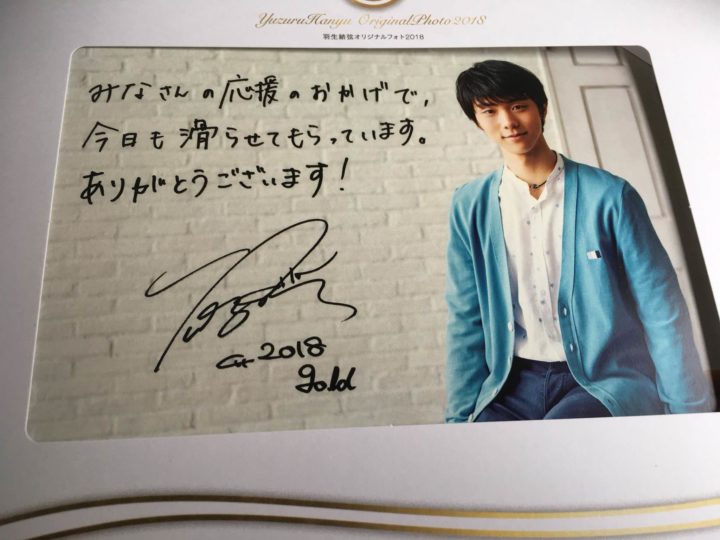 Yuzuru Hanyu Original Photo 2018
羽生結弦オリジナルフォト2018
みなさんの応援のおかげで、
今日も滑らせてもらっています。
ありがとうございます!
2018
gold